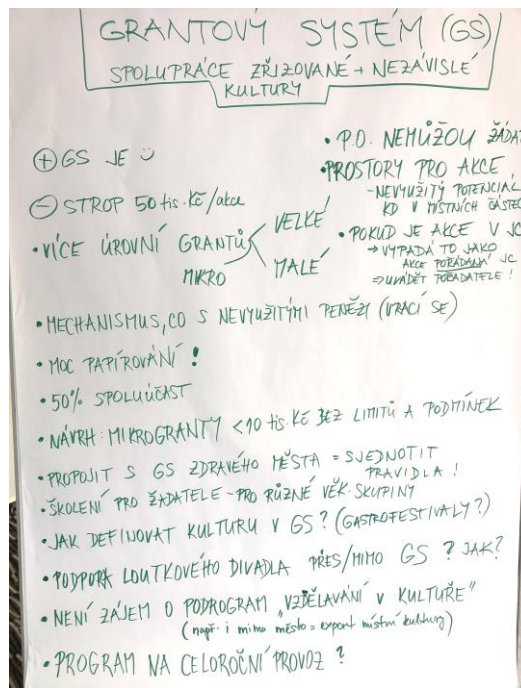 GRANTOVÝ SYSTÉM (GS)
SPOLUPRÁCE ZŘIZOVANÉ + NEZÁVISLÉ
KULTURY
⊕ GS JE
⊖ STROP 50 tis. Kč/akce
• VÍCE ÚROVNÍ GRANTŮ
VELKÉ
MALÉ
MIKRO
• P.O. NEMŮŽOU ŽÁDAT
• PROSTORY PRO AKCE
- NEVYUŽITÝ POTENCIÁL
KD V MÍSTNÍCH ČÁSTEC
• POKUD JE AKCE V JC
→ VYPADÁ TO JAKO
AKCE POŘÁDANÁ JC
⇒ UVÁDĚT POŘADATELE!
• MECHANISMUS, CO S NEVYUŽITÝMI PENĚZI (VRACÍ SE)
• MOC PAPÍROVÁNÍ!
• 50% SPOLUÚČAST
• NÁVRH: MIKROGRANTY < 10 tis. Kč BEZ LIMITŮ A PODMÍNEK
• PROPOJIT S GS ZDRAVÉHO MĚSTA = SJEDNOTIT
PRAVIDLA!
• ŠKOLENÍ PRO ŽADATELE - PRO RŮZNÉ VĚK. SKUPINY
• JAK DEFINOVAT KULTURU V GS? (GASTROFESTIVALY?)
• PODPORA LOUTKOVÉHO DIVADLA PŘES/MIMO GS? JAK?
• NENÍ ZÁJEM O PODROGRAM „VZDĚLAVÁNÍ V KULTUŘE"
(např. i mimo město = export místní kultury)
• PROGRAM NA CELOROČNÍ PROVOZ?